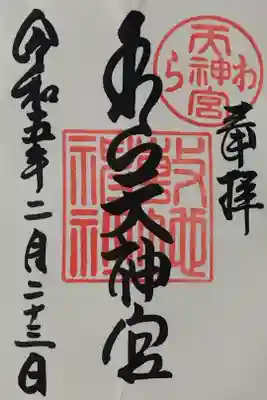 奉拝
わら
天神宮
わら天神宮
令和五年二月二十三日